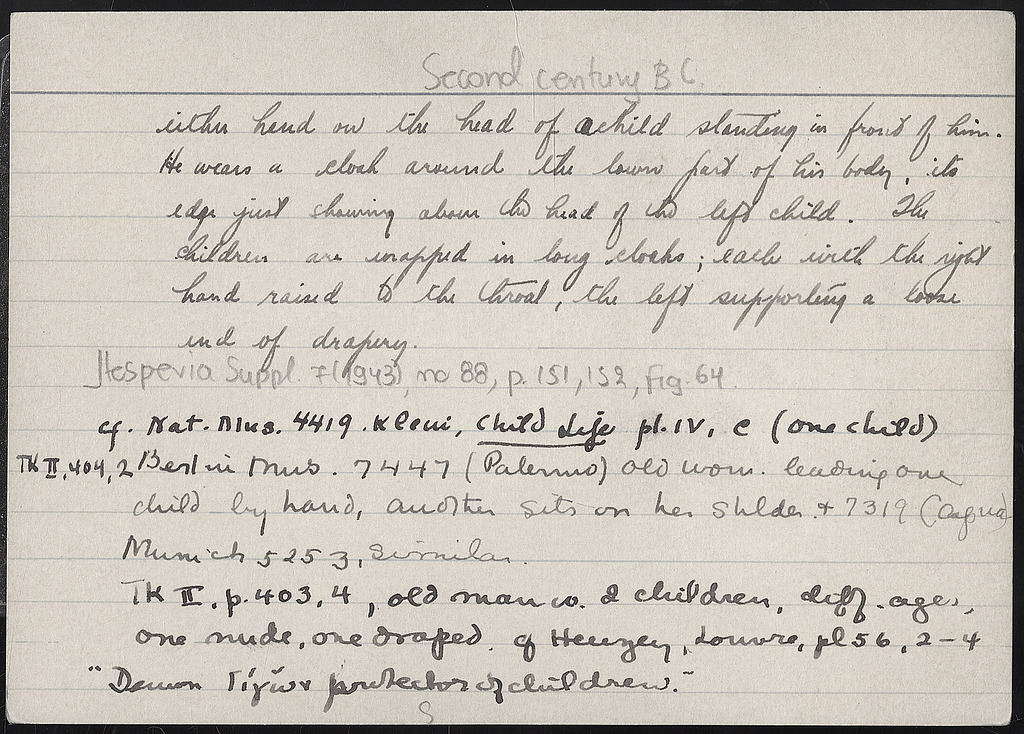 Second century B C.
either hand on the head of a child standing in front of him.
He wears a cloak around the lower part of his body, its
edge just showing above the head of the left child. The
children are wrapped in long cloaks; each with the right
hand raised to the throat, the left supporting a loose
end of drapery.
Hesperia Suppl. 7 (1943), no 88, p. 151, 152, fig. 64
cf. Nat. Mus. 4419. Klein, Child Life pl. IV, C (one child)
TK II, 404, 2 Berlin Mus. 7447 (Palermo) old wom. leading one
child by hand, another sits on her shlder. + 7319 (Capua)
Munich 5253, similar.
TK II, p. 403, 4, old man w. 2 children, diff. ages,
one nude, one draped. cf Heuzey, Louvre, pl 56, 2-4
"Demon Γίγων protector of children."
S